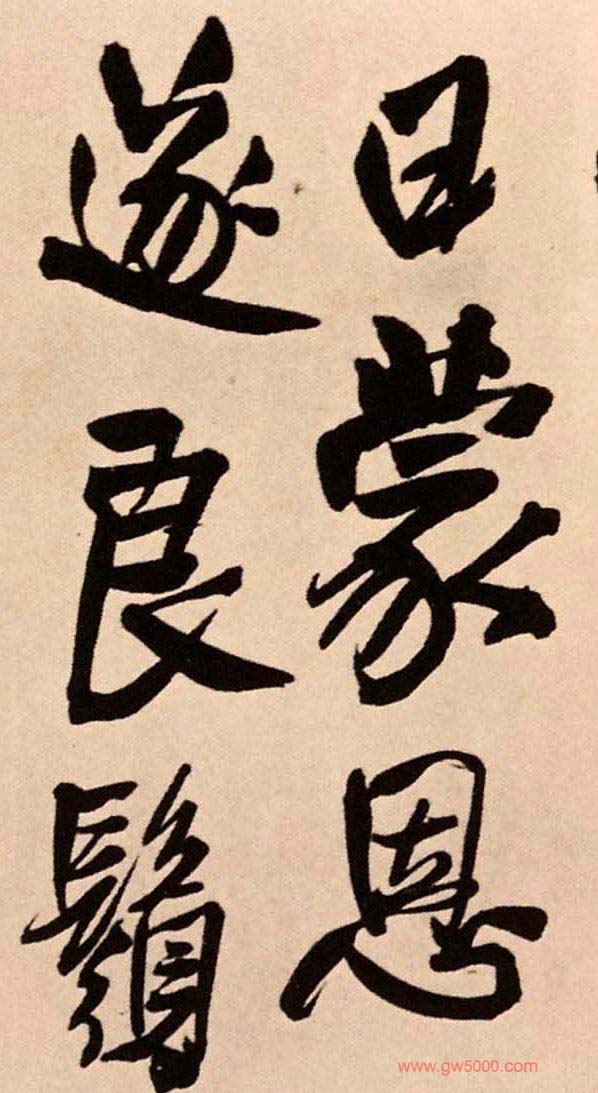 日蒙恩
遂良鬚
www.gw5000.com